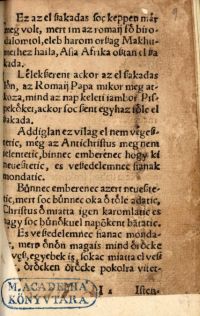 Ez az el szakadas soc keppen már
meg volt, mert im az romaij fő biro-
dalomtol, eleb harom orszag Makhu-
methez haila, Asia Afrika osztan el sza
kada.
Lelekszerent ackor az el szakadas
lőn, az Romaij Papa mikor meg at-
koza, mind az nap keleti iambor Pis-
pekőket, ackor soc szent egyhaz tőle el
szakada.
Addiglan ez vilag el nem vegez-
tetic, még az Antichristus meg nem
ielentetic, binnec emberenec hogy ki
neueztetic, es veszedelemnec fianak
mondatic.
Bűnnec emberenec azert neuezte-
tic, mert soc bűnnec oka ő tőle adatic,
Christus ő miatta igen karomlatic es
nagy soc bűnőkuel napőkent bátatic.
Es veszedelemnec fianac monda-
mert őnőn magais mind őrőcke
vesz, egyebek is, sokac miatta el vesz
őrőcken őrőcke pokolra vitet-
I
Isten-
M. ACADEMIA
KÖNYVTÁRA